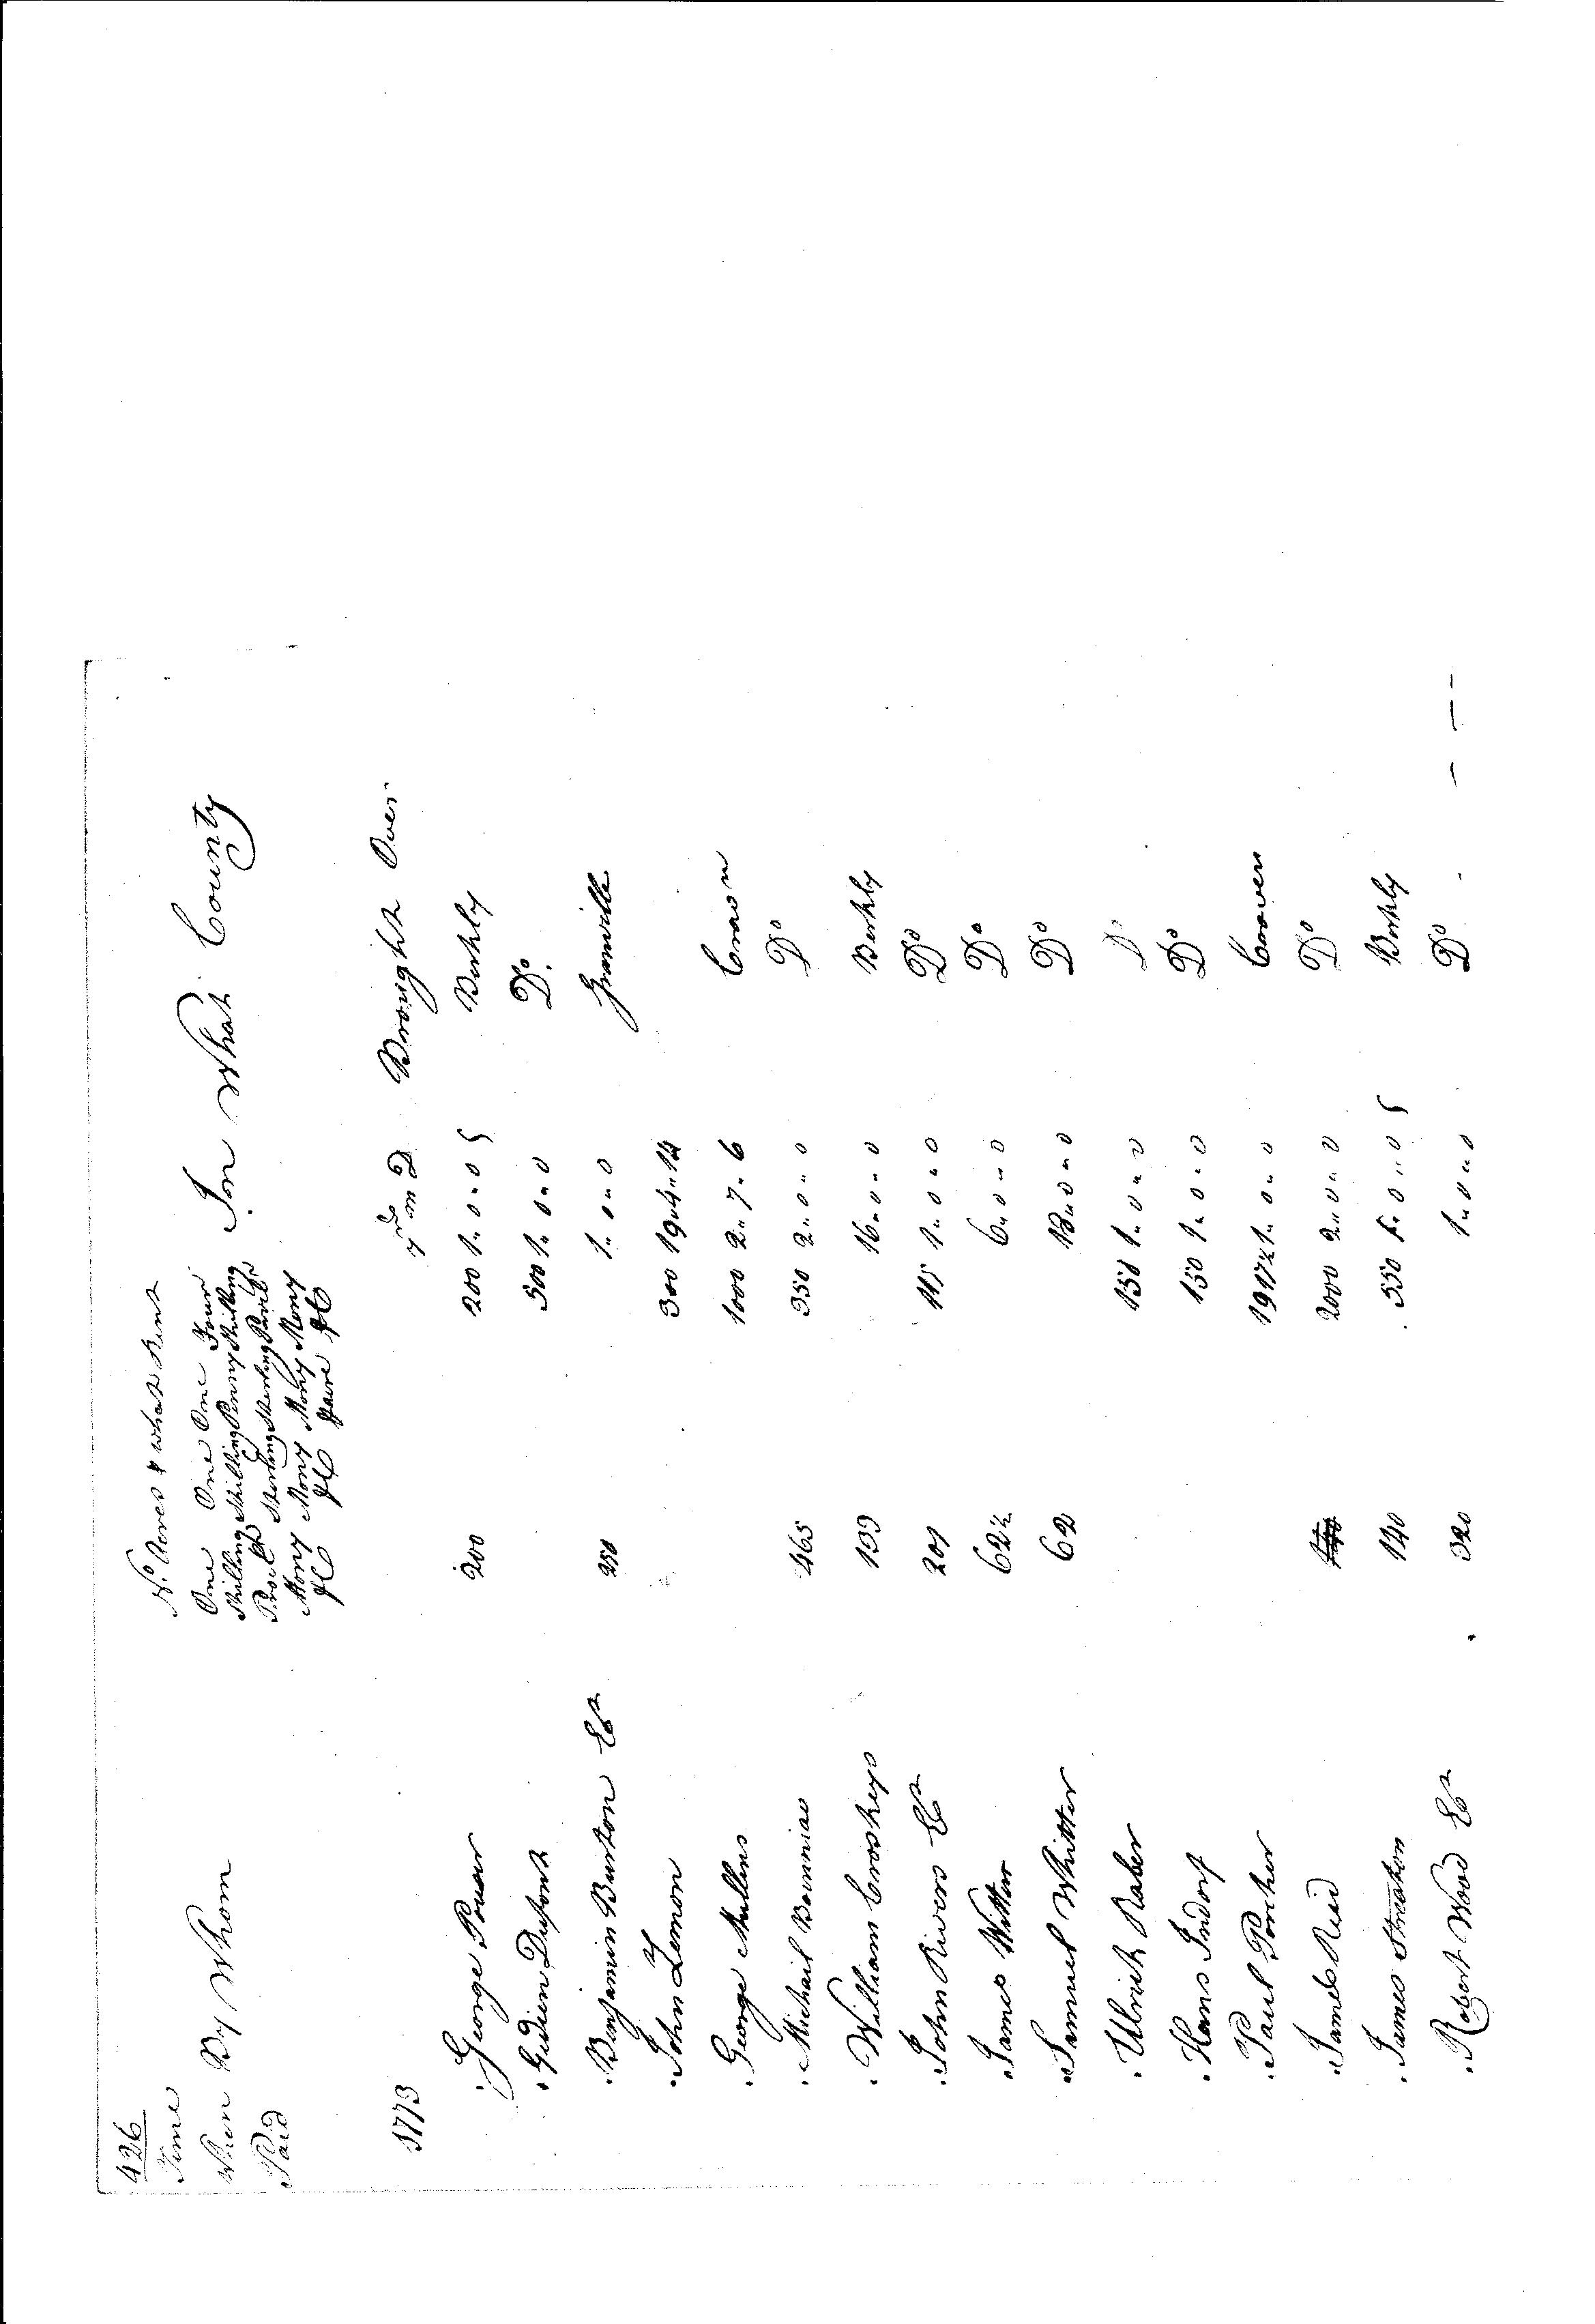 426
Time when Paid By Whom No. Acres & what Rent In What County
One Shilling Procl. Mony One Shilling Sterling Mony One Penny Sterling Mony Four Shilling Procl. Mony
1773 yrs m D Brought Over
George 200 200 1 " 0 " 0 Berkly
Gidion Dupont 500 1 " 0 " 0 Do.
Benjamin Burton Est 250 1 " 0 " 0 Granville
John Lemon 300 19 " 4 " 14
George Mullins 1000 2 " 7 " 6 Craven
Michail 465 350 2 " 0 " 0 Do
William Croskeys 139 16 " 0 " 0 Berkly
John Rivers Est 201 115 1 " 0 " 0 Do
James Witter 62½ 6 " 0 " 0 Do
Samuel Whitter 62 13 " 0 " 0 Do
Ulrick Raber 150 1 " 0 " 0 Do
Hans Indorf 150 1 " 0 " 0 Do
Paul Porcher 1917½ 1 " 0 " 0 Craven
James Reid 2000 2 " 0 " 0 Do
James Streaton 140 550 1 " 0 " 0 Berkly
Robert Wood Est 320 1 " 0 " 0 Do - - -